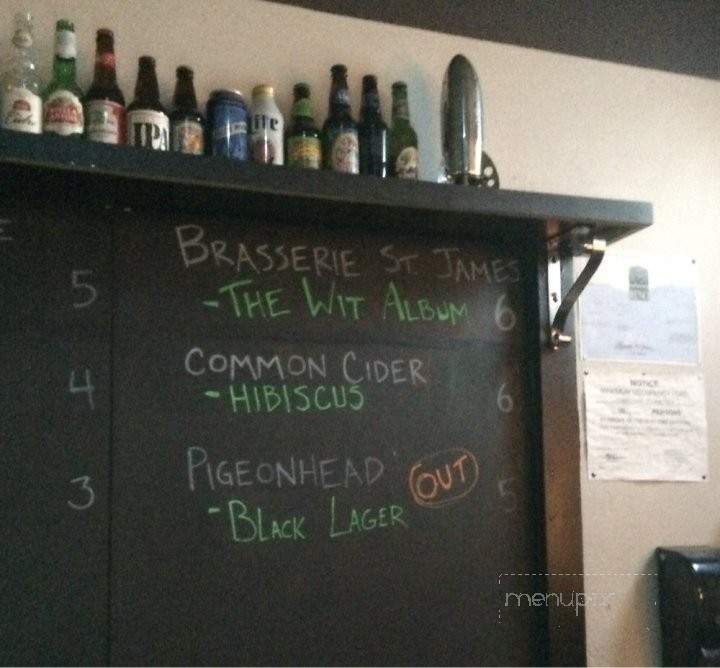 IPA
Lite
E
5
BRASSERIE ST. JAMES
- THE WIT ALBUM 6
4
COMMON CIDER
- HIBISCUS 6
3
PIGEONHEAD OUT 5
- BLACK LAGER
NOTICE
menupix